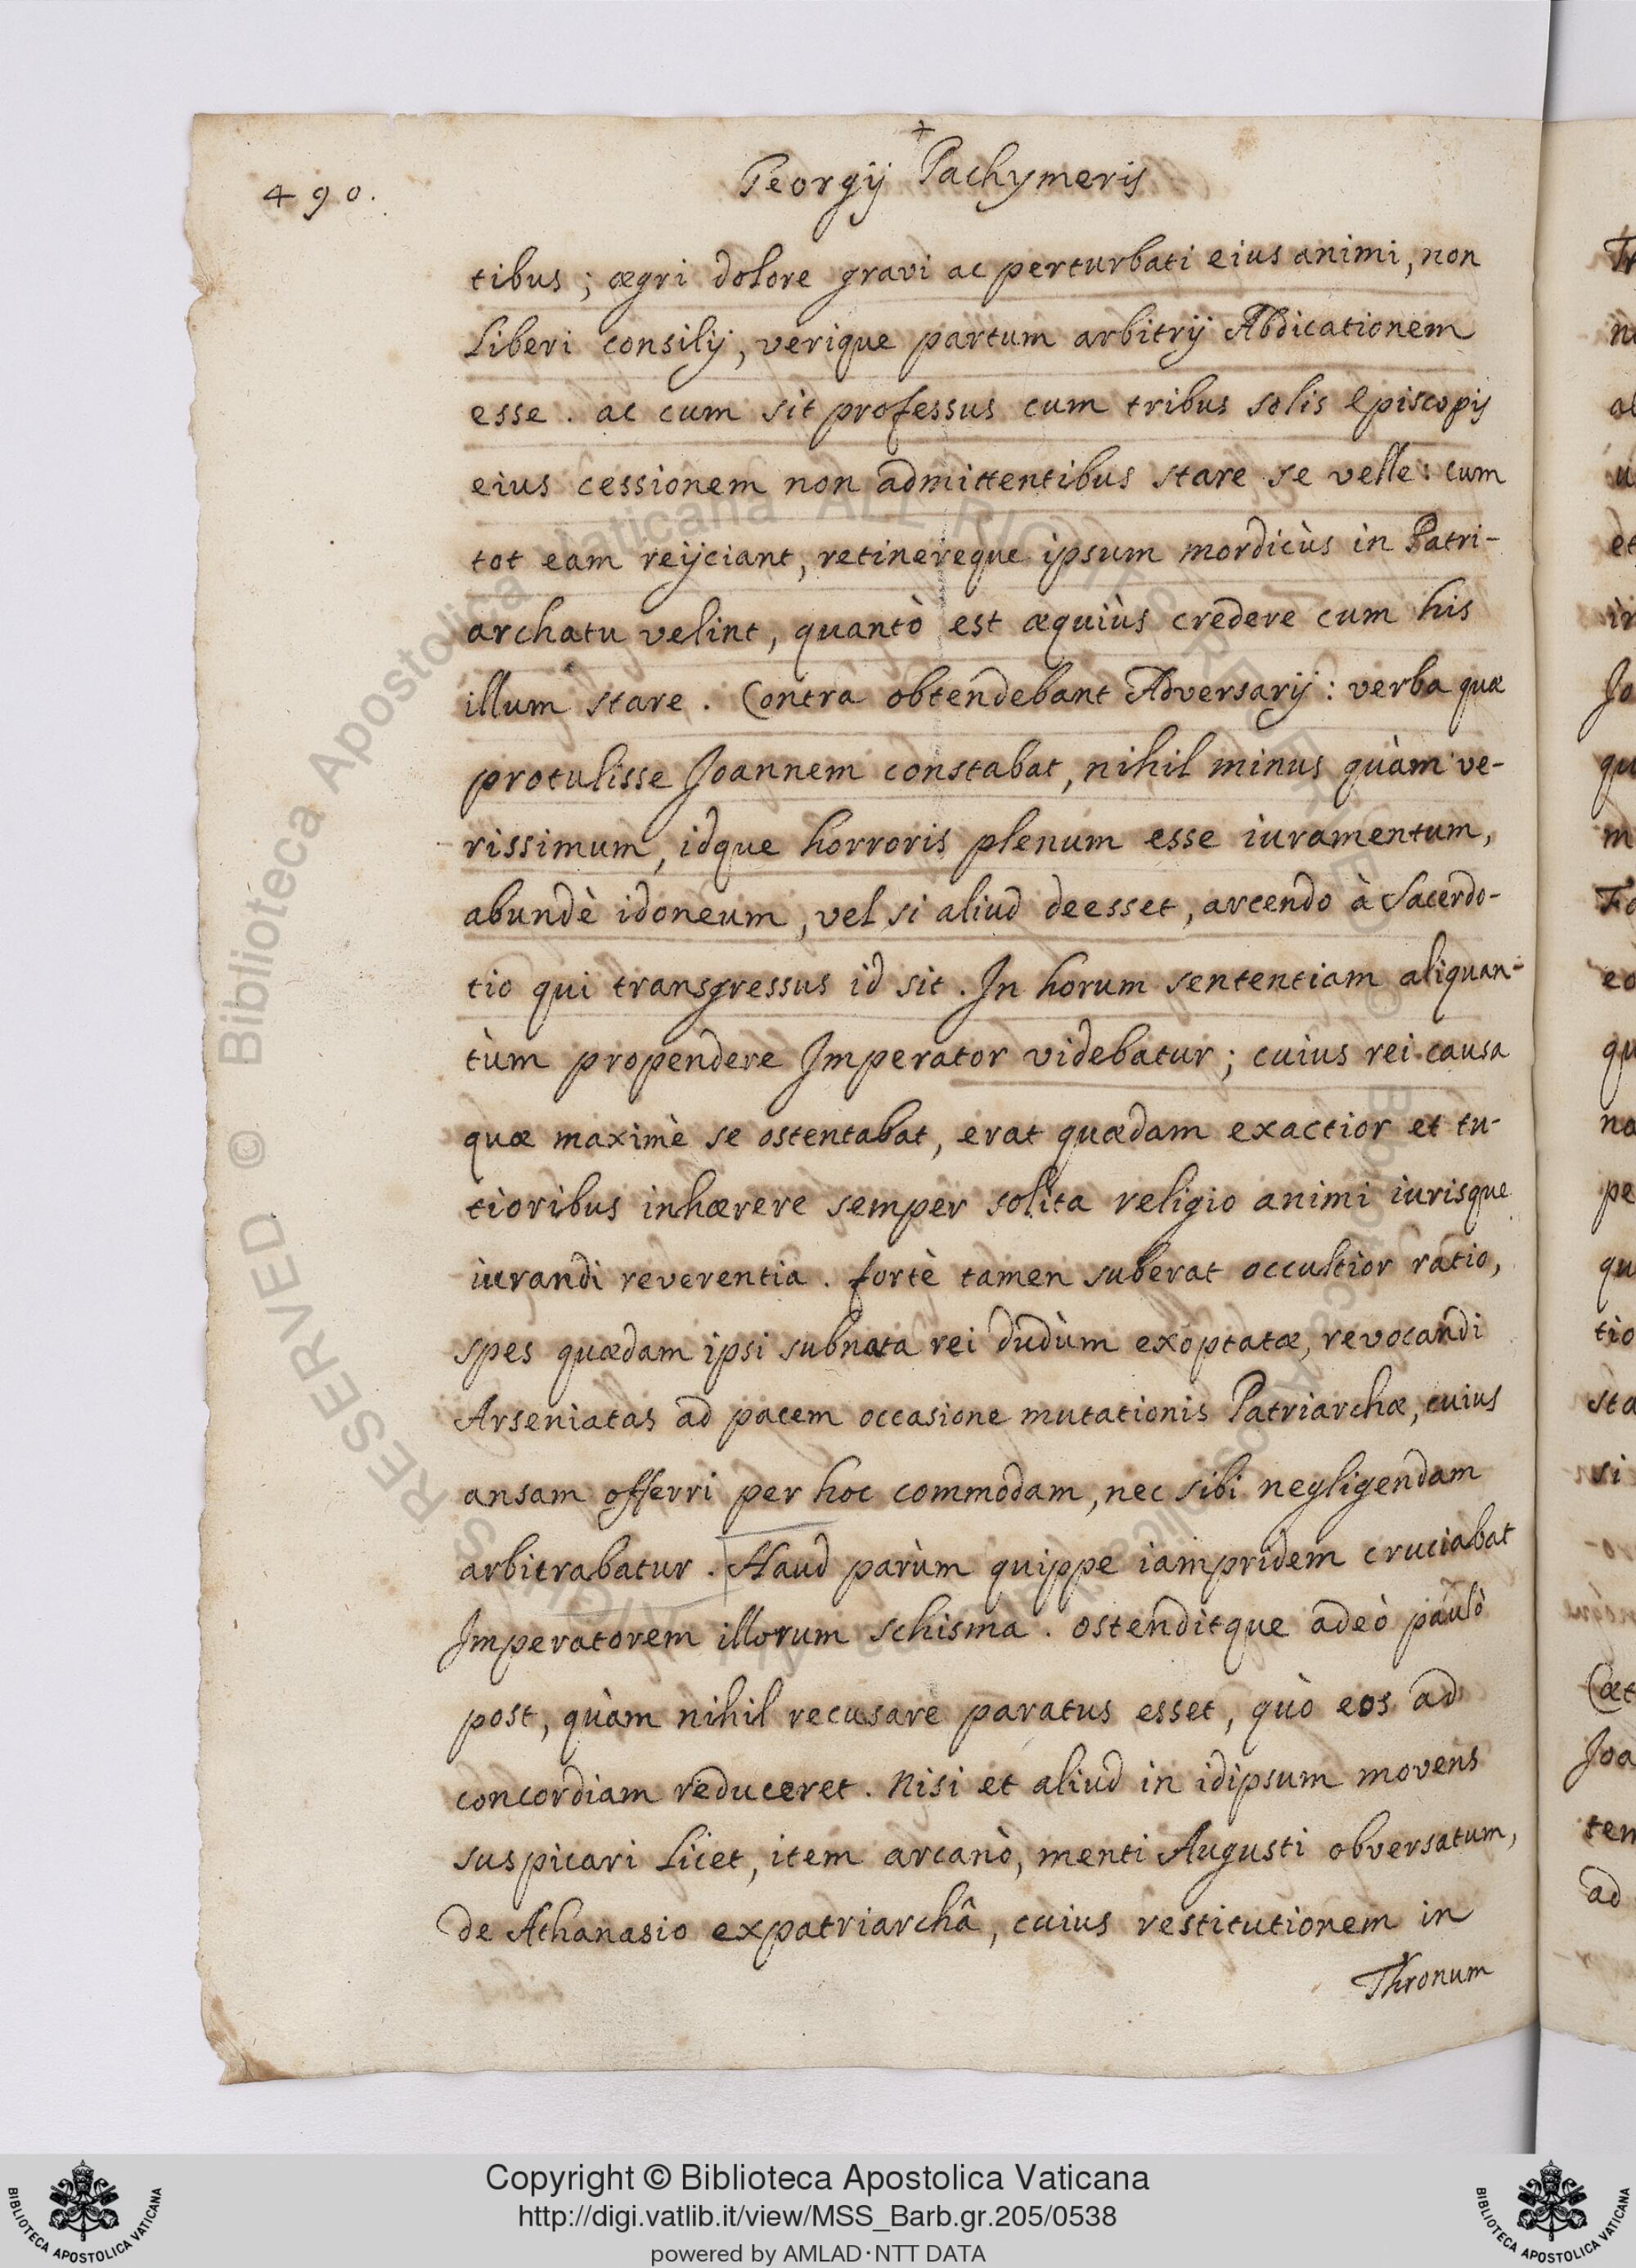 490.
Georgij Pachymeris
tibus; ægri dolore gravi ac perturbati eius animi, non
Liberi consilij, verique partum arbitrij Abdicationem
esse. ac cum sit professus cum tribus solis Episcopis
eius cessionem non admittentibus stare se velle: cum
tot eam reijciant, retinereque ipsum mordicùs in Patri-
archatu velint, quantò est æquiùs credere cum his
illum stare. Contra obtendebant Adversarij: verba quæ
protulisse Joannem constabat, nihil minus quàm ve-
rissimum, idque horroris plenum esse iuramentum,
abundè idoneum, vel si aliud deesset, arcendo à Sacerdo-
tio qui transgressus id sit. In horum sententiam aliquan-
tùm propendere Imperator videbatur; cuius rei causa
quæ maximè se ostentabat, erat quædam exactior et tu-
tioribus inhærere semper solita religio animi iurisque
iurandi reverentia. fortè tamen suberat occultior ratio,
spes quædam ipsi subnata rei dudùm exoptatæ, revocandi
Arseniatas ad pacem occasione mutationis Patriarchæ, cuius
ansam offerri per hoc commodam, nec sibi negligendam
arbitrabatur. Haud parùm quippe iampridem cruciabat
Imperatorem illorum schisma. ostenditque adeò paulò
post, quàm nihil recusare paratus esset, quò eos ad
concordiam reduceret. Nisi et aliud in idipsum movens
suspicari Licet, item arcanò, menti Augusti obversatum,
de Athanasio expatriarchâ, cuius restitutionem in
Thronum
Copyright © Biblioteca Apostolica Vaticana
http://digi.vatlib.it/view/MSS_Barb.gr.205/0538
powered by AMLAD·NTT DATA